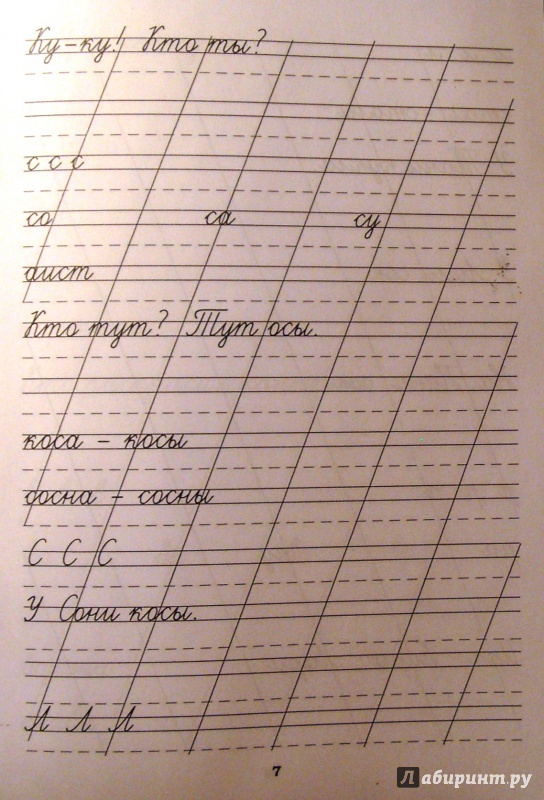 Ку-ку! Кто ты?
с с с
со са су
аист
Кто тут? Тут осы.
коса - косы
сосна - сосны
С С С
У Сони косы.
Л Л Л
7
Лабиринт.ру